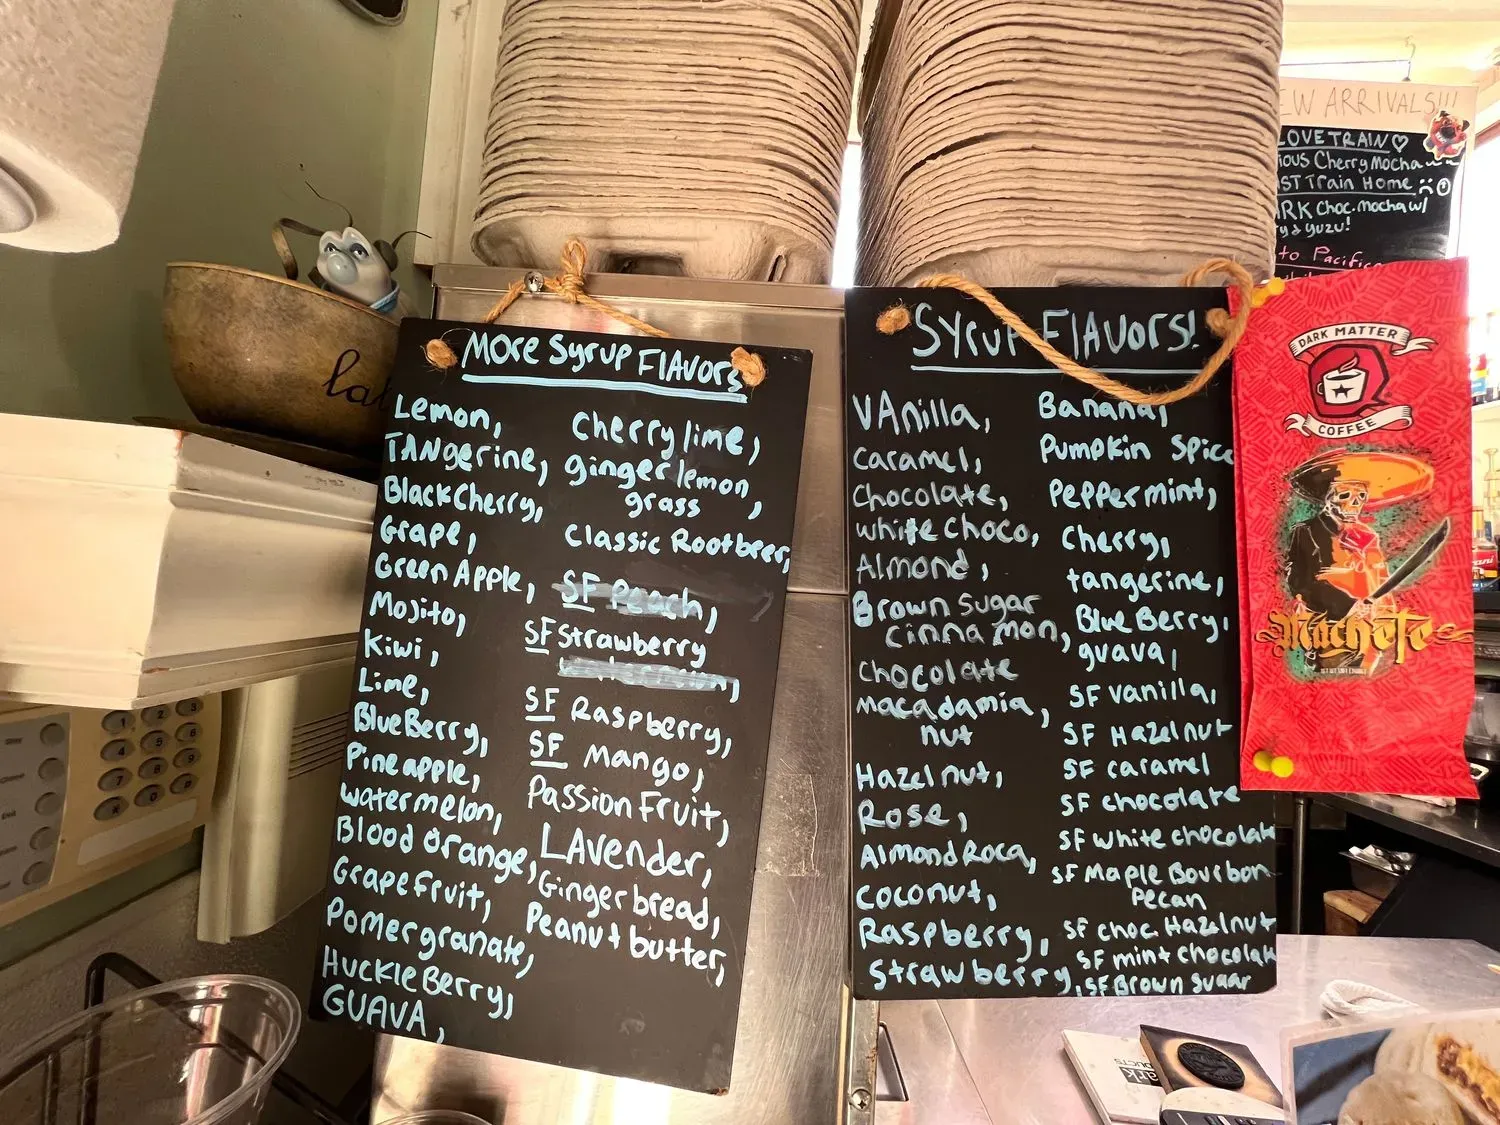 More Syrup Flavors
Lemon,
TANgerine,
Black Cherry,
Grape,
Green Apple,
Mojito,
Kiwi,
Lime,
BlueBerry,
Pineapple,
watermelon,
Blood Orange,
Grapefruit,
Pomergranate,
HuckleBerry,
GUAVA,
Cherry lime,
ginger lemon
grass,
Classic Rootbeer,
SF Peach,
SF Strawberry
SF Raspberry,
SF Mango,
Passion Fruit,
LAvender,
Gingerbread,
Peanut butter,
Syrup Flavors!
VAnilla,
caramel,
Chocolate,
white choco,
Almond,
Brown sugar
cinnamon,
Chocolate
macadamia,
nut
Hazelnut,
Rose,
Almond Roca,
coconut,
Raspberry,
Strawberry,
Banana,
Pumpkin Spice
Peppermint,
Cherry,
tangerine,
BlueBerry,
guava,
SF vanilla,
SF Hazelnut
SF caramel
SF chocolate
SF white chocolat
SF Maple Bourbon
Pecan
SF choc. Hazelnut
SF mint chocolat
SF Brown Sugar
EW ARRIVALS!!!
LOVE TRAIN
ious Cherry Mocha
ST Train Home
RK Choc. mocha w/
y & yuzu!
to Pacific
DARK MATTER
COFFEE
Machete
lat
1
2
3
4
5
6
7
8
9
0